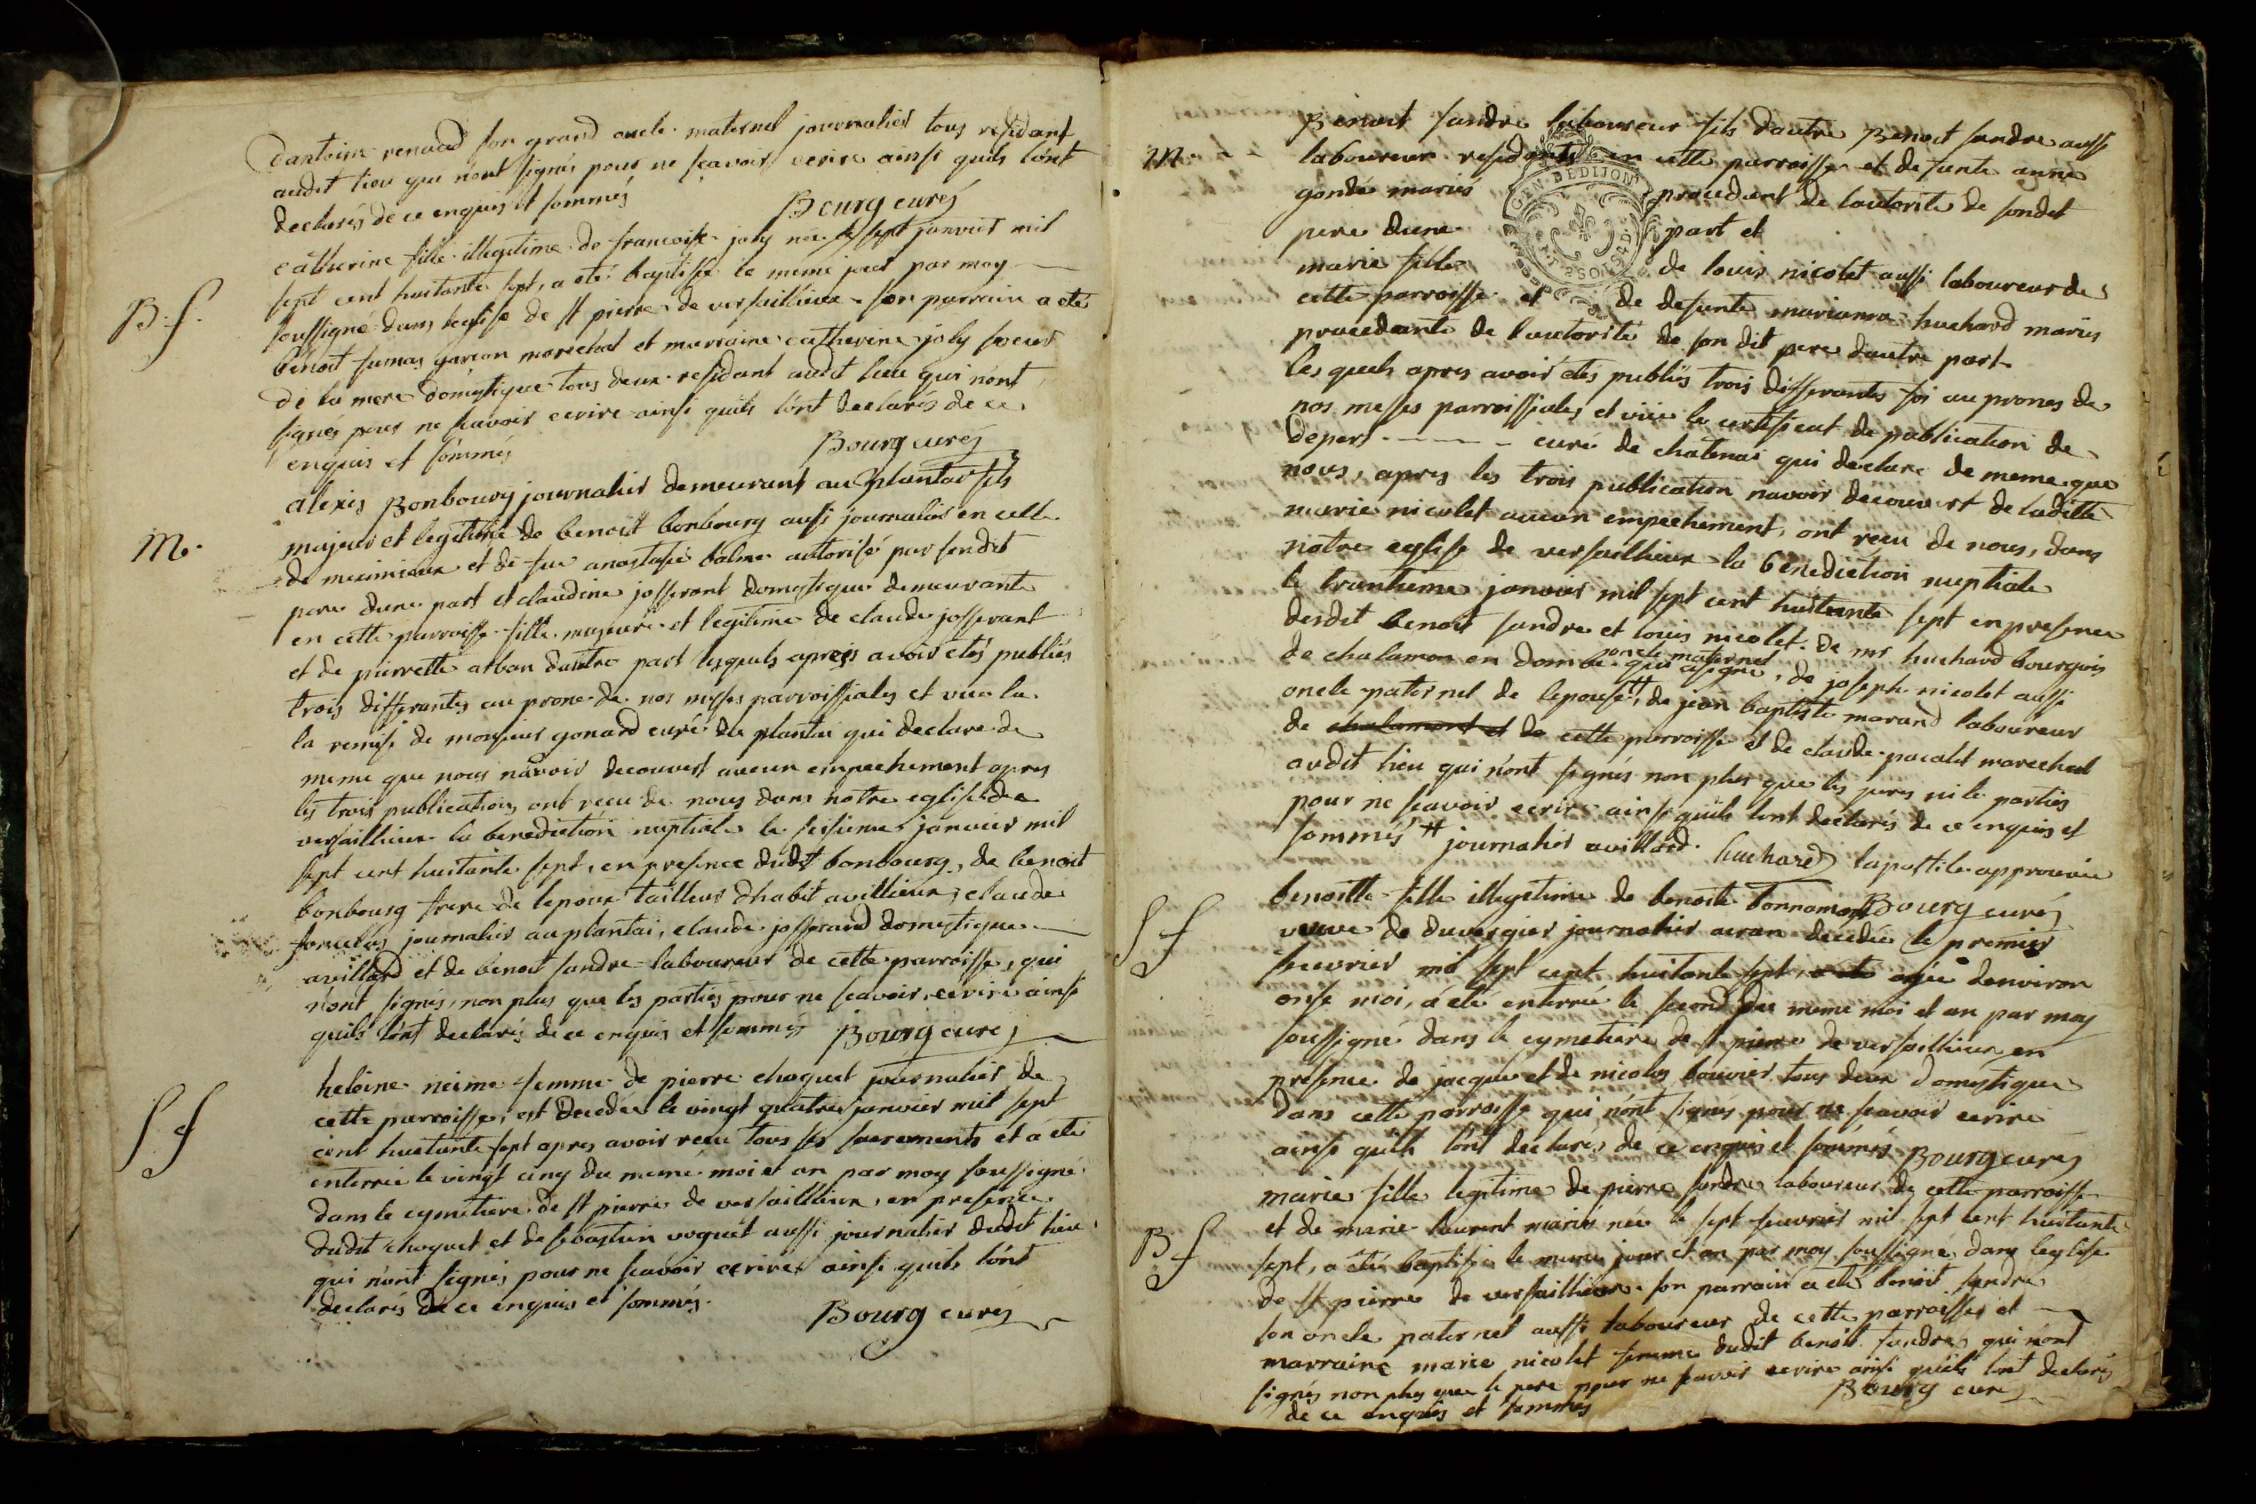 dantoine renaud son grand oncle maternel journalier tous residant
audit lieu qui nont signés pour ne scavoir ecrire ainsi quils lônt
declarés de ce enquis et sommés Bourg curés
B. f.
catherine fille illegitime de francoise joly née le sept janvier mil
sept cent huitante sept, a eté baptisse le meme jour par moy
soussigné dans leglise de st pierre de versaillieux son parrain a eté
benoit garcon marechal et marraine catherine joly soeur
de la mere domestique tous deux residant audit lieu qui nont
signés pour ne scavoir ecrire ainsi quils lônt declarés de ce
enquis et sommés Bourg curés
M.
alexis Bonbourg journalier demeurant au plantai fils
majeur et legitime de benoit bonbourg aussi journalier en cell
de meximieux et de fue anastasie balme autorisé par sondit
pere dune part et claudine josserant domestique demeurante
en cette parroisse fille majeure et legitime de claude josserant
et de pierrette arban dautre part lesquels apres avoir etés publiés
trois differantes au prone de nos messes parroissiales et vue la
la remise de monsieur gonard curé du plantai qui declare de
meme que nous navoir decouvert aucun empechement apres
les trois publications, ont recu de nous dans notre eglise de
versaillieux la benediction nuptiale le seisieme janvier mil
sept cent huitante sept, en presence dudit bonbourg, de benoit
bonbourg frere de lepoux tailleur dhabit avillieux, claude
journalier au plantai, claude josserand domestique
avillard et de benoit sandre laboureur de cette parroisse, qui
nont signés, non plus que les parties pour ne scavoir ecrire ainsi
quils lônt declarés de ce enquis et sommés Bourg curés
S f
heloine neime femme de pierre choquet journalier de
cette parroisse, est decedée le vingt quatre janvier mil sept
cent huitante sept apres avoir recu tous ses sacrements et a eté
enterrée le vingt cinq du meme moi et an par moy soussigné
dans le cymetiere de st pierre de versaillieux, en presence
dudit choquet et de sebastien voquet aussi journalier dudit lieu
qui nont signés pour ne scavoir ecrire ainsi quils lont
declarés de ce enquis et sommés. Bourg curés
M.
Benoit sandre laboureur fils dautre Benoit sandre aussi
laboureur residants en cette parroisse et defunte anne
gonde mariés procedant de lautorite de sondit
pere dune part et
marie fille de louis nicolet aussi laboureur de
cette parroisse et de defunte marianne huchard mariés
procedante de lautorité de son dit pere dautre part
les quels apres avoir etés publiés trois differantes foi au prones de
nos messes parroissiales et vue le certificat de publication de
depert - - - - curé de chatenai qui declare de meme que
nous, apres les trois publication navoir decouvert de ladite
marie nicolet aucun empechement, ont recu de nous, dans
notre eglise de versaillieux la benediction nuptiale
le trantieme janvier mil sept cent huitante sept en presence
desdit benoit sandre et louis nicolet de mr huchard bourgois
oncle maternel
de chalamon en dombe qui a signé, de joseph nicolet aussi
oncle paternel de lepouse #, de jean baptiste marand laboureur
de chalamont et de cette parroisse et de claude pacalet marechal
audit lieu qui nont signés non plus que les peres ni le parties
pour ne scavoir ecrire ainsi quils lont declarés de ce enquis et
sommés # journalier avillard. huchard lapostile approuvée
Bourg curés
S f
benoitte fille illegitime de benoite bonnamont
veuve de duvergier journalier decedée le premier
fevrier mil sept cent huitante sept, a eté agée denviron
onse moi, a eté enterrée le second du meme moi et an par moy
soussigné dans le cymetiere de st pierre de versaillieux en
presence de jacque et de nicolas bouvier tous deux domestique
dans cette parroisse qui nont signés pour ne scavoir ecrire
ainsi quils lont declarés de ce enquis et sommés Bourg curés
B f
marie fille legitime de pierre sandre laboureur de cette parroisse
et de marie laurent mariés née le sept fevrier mil sept cent huitante
sept, a été baptisée le meme jour et an par moy soussigné dans leglise
de st pierre de versaillieux son parrain a eté benoit sandre
son oncle paternel aussi laboureur de cette parroisse et
marraine marie nicolet femme dudit benoit sandre, qui nont
signés non plus que le pere pour ne scavoir ecrire ainsi quils lont declarés
de ce enquis et sommés Bourg curés